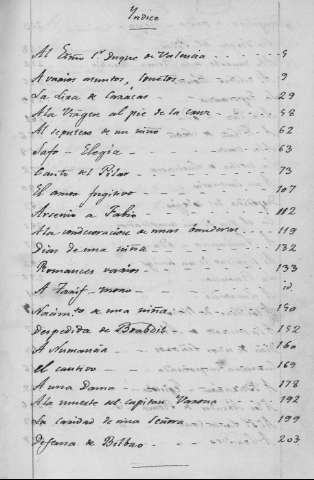 Indice
Al Exmo Sr Duque de Valencia - - - - - 5
A varios asuntos, sonetos - - - - - 9
La Lira de Caracas - - - - - 29
A la Virgen al pie de la cruz - - - - 58
Al sepulcro de un niño - - - - - 62
Safo - Elegía - - - - - 63
Canto del Pilar - - - - - 73
El amor fugitivo - - - - - 107
Arsenio a Fabio - - - - - 112
A la condecoracion de unas banderas - - - 119
Dias de una niña - - - - - 132
Romances varios - - - - - 133
A Tarif - - - - - id.
Nacimto de una niña - - - - - 150
Despedida de - - - - - 152
Á Numancia - - - - - 160
el cautivo - - - - - 169
A una dama - - - - - 178
A la muerte del capitan Varona - - - 192
La caridad de una señora - - - - 199
Defensa de Bilbao - - - - - 203